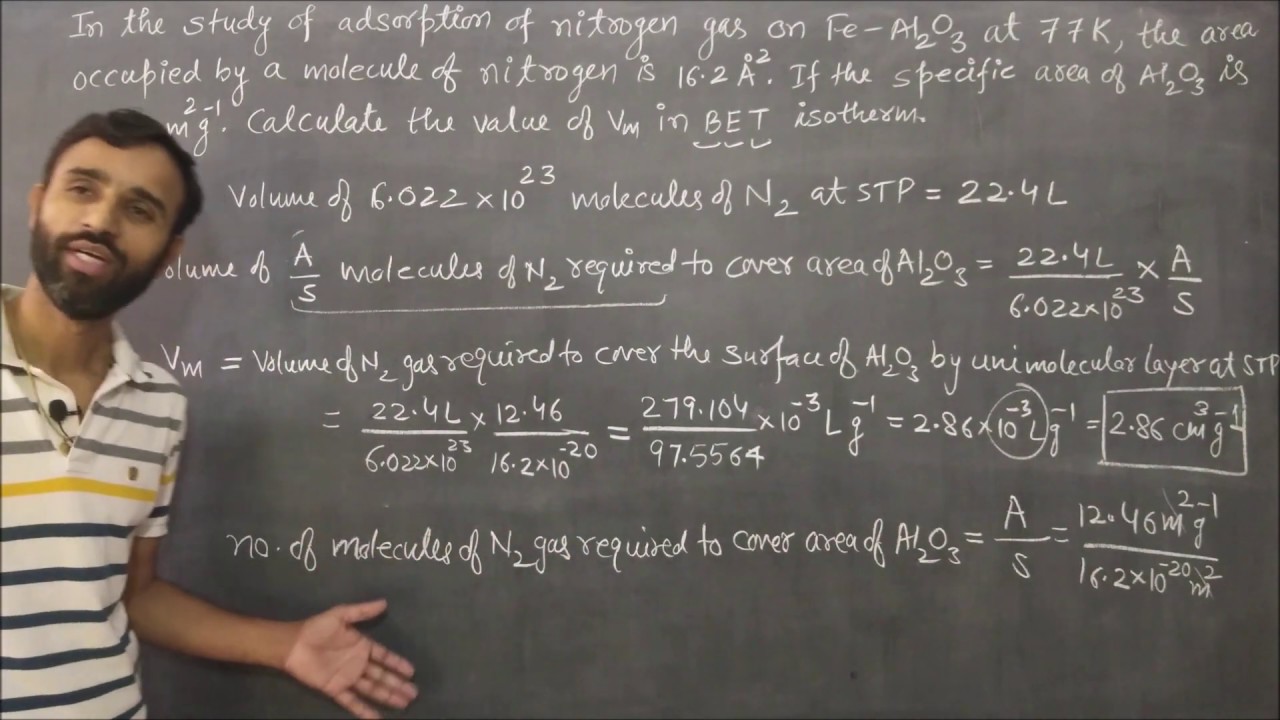 In the study of adsorption of nitrogen gas on Fe-Al₂O₃ at 77K, the area
occupied by a molecule of nitrogen is 16.2 Å². If the specific area of Al₂O₃ is
m²g⁻¹. Calculate the value of Vm in BET isotherm.
Volume of 6.022×10²³ molecules of N₂ at STP = 22.4L
olume of A/S molecules of N₂ required to cover area of Al₂O₃ = 22.4L/6.022×10²³ × A/S
Vm = Volume of N₂ gas required to cover the surface of Al₂O₃ by unimolecular layer at STP
= 22.4L/6.022×10²³ × 12.46/16.2×10⁻²⁰ = 279.104/97.5564 ×10⁻³ L g⁻¹ = 2.86×10⁻³L g⁻¹ = 2.86 cm³g⁻¹
no. of molecules of N₂ gas required to cover area of Al₂O₃ = A/S = 12.46m²g⁻¹/16.2×10⁻²⁰m²